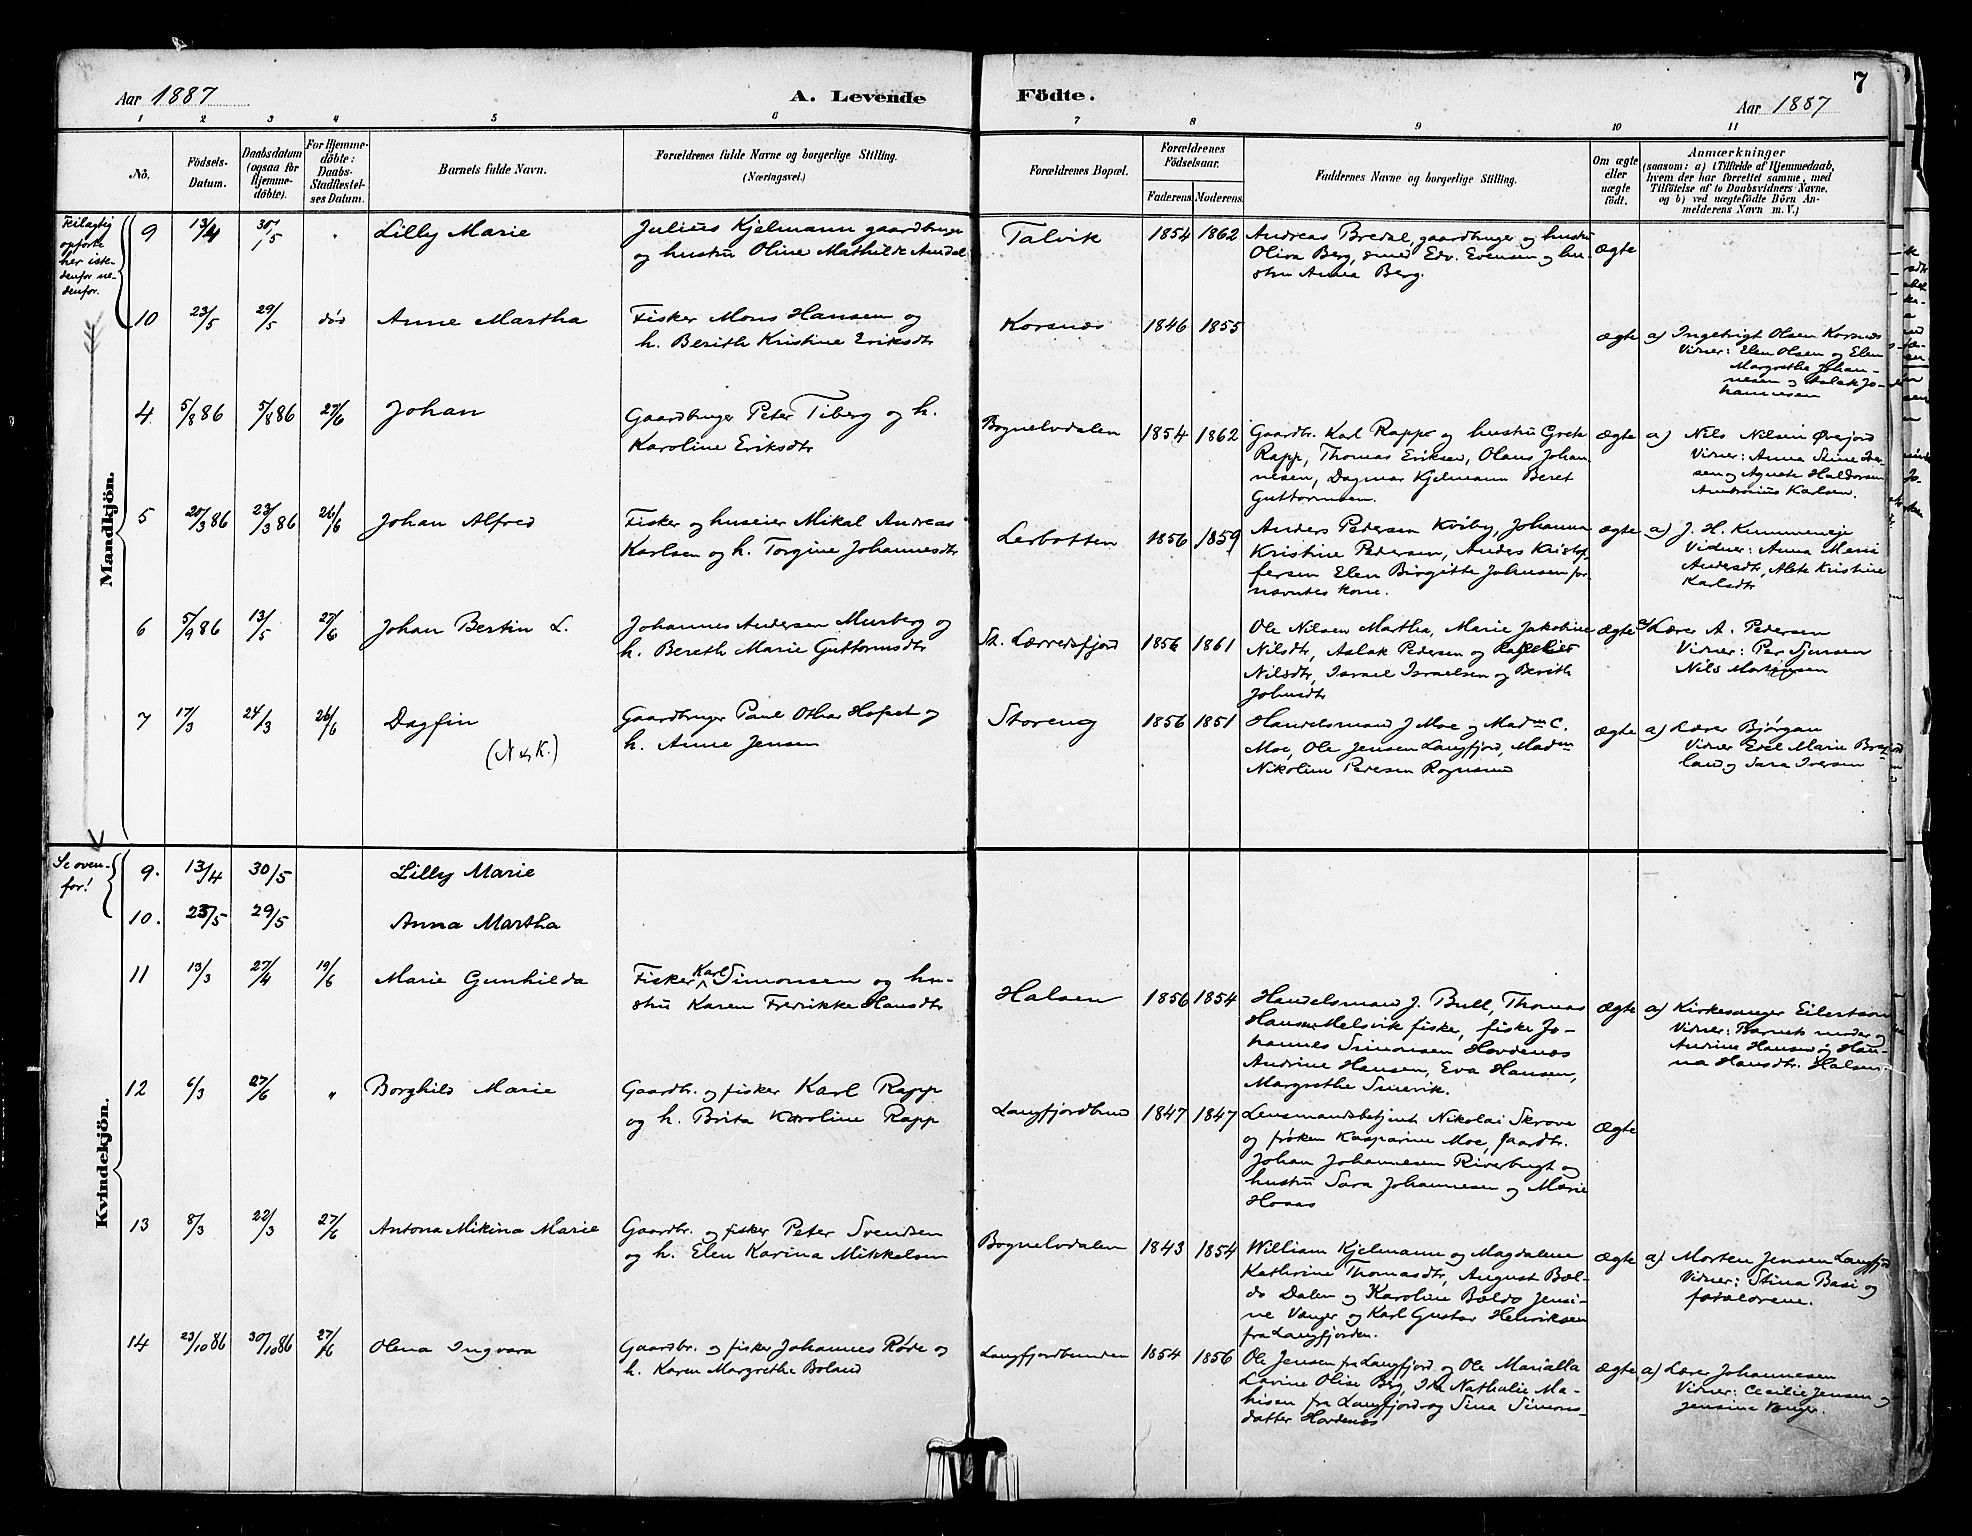 7
Aar 1887
A. Levende Födte.
Aar 1887
1 2 3 4 5 6 7 8 9 10 11
No.
Födsels-
Datum.
Daabsdatum
(ogsaa for
Hjemme-
döbte).
For Hjemme-
döbte:
Daabs-
Stadfæstel-
ses Datum.
Barnets fulde Navn.
Forældrenes fulde Navne og borgerlige Stilling.
(Næringsvei.)
Forældrenes Bopæl.
Forældrenes
Födselsaar.
Faderens Moderens.
Faddernes Navne og borgerlige Stilling.
Om ægte
eller
uægte
födt.
Anmærkninger
(saasom: a) i Tilfælde af Hjemmedaab,
hvem der har forrettet samme, med
Tilföielse af to Daabsvidners Navne,
og b) ved uægtefödte Börn An-
melderens Navn m. V.)
Mandkjön.
Feilagtig
opførte
her iste-
denfor ne-
denfor.
9 13/4 30/5 " Lilly Marie
Julius Kjelmann gaardbruger
og hustru Oline Mathilde Aundal
Talvik 1854 1862
Andreas Bredal, gaardbruger og hustru
Oliva Berg, smed Edv. Evensen og hu-
stru Anna Berg.
ægte
10 23/5 29/5 død Anne Martha
Fisker Mons Hansen og
h. Berith Kristine Eriksdtr
Korsnæs 1846 1855
ægte
a) Ingebrigt Olsen Korsnes
Vidner: Elen Olsen og Elen
Margrethe Johan-
nesen og Aslak Jo-
hannesen
4. 5/8 86 5/8 86 27/6 Johan
Gaardbruger Peter Tiberg og h.
Karoline Eriksdtr
Bognelvdalen 1854 1862
Gaardbr. Karl Rapp og hustru Grete
Rapp, Thomas Eriksen, Olaus Johan-
nesen, Dagmar Kjelmann Beret
Guttormsen.
ægte
a) Nils Nilsen Øverjord
Vidner: Anna Stine Iver-
sen og Agnete Haldorsen
Ambrosius Karlsen.
5 20/3 86 23/3 86 26/6 Johan Alfred
Fisker og huseier Mikal Andreas
Karlsen og h. Torgine Johannesdtr
Lerbotten 1856 1859
Anders Pedersen Kviby, Johanna
Kristine Pedersen, Anders Kristof-
fersen Elen Birgitte Johansen for-
nævntes kone.
ægte
a) J. H. Kummeneje
Vidner: Anna Marie
Andersdtr, Alete Kristine
Karlsdtr
6 5/9 86 13/5 27/6 Johan Bertin L.
Johannes Andersen Murberg og
h. Bereth Marie Guttormsdtr
St. Lærredsfjord 1856 1861
Ole Nilsen Martha, Marie Jakobine
Nilsdtr, Aslak Pedersen og
Nilsdtr, Israel Israelsen og Berith
Johnsdtr
ægte
a) Lærer A. Pedersen
Vidner: Per Jensen
Nils Mortensen
7 17/3 24/3 26/6 Dagfin
(N og K.)
Gaardbruger Paul Othar Hofset og
h. Anne Jensen
Storeng 1856 1851
Handelsmand J Moe og Madm C.
Moe, Ole Jensen Langfjord, Madm
Nikoline Pedersen Rognsund
ægte
a) Lærer Bjørgan
Vidner Edel Marie
og Sara Iversen
Kvindekjön.
Se oven-
for!
9. 13/4 30/5 Lilly Marie
10. 23/5 29/5 Anna Martha
11 13/3 27/4 19/6 Marie Gunhilda
Fisker Karl Simonsen og hu-
stru Karen Fredrikke Hansdtr
Halsen 1856 1854
Handelsmand J. Bull, Thomas
Hansen Melsvik fisker, fisker Jo-
hannes Simonsen Hordenæs
Andrine Hansen, Eva Hansen,
Margrethe Simavik.
ægte
a) Kirkesanger Eilertsen
Vidner: Barnets moder og
Andrine Hansen og Han-
na Hansdtr. Halsen
12 6/3 27/6 " Borghild Marie
Gaardbr. og fisker Karl Rapp
og h. Brita Karoline Rapp
Langfjordbund 1847 1847
Lensmandsbetjent Nikolai Skrove
og frøken Kasparine Moe, gaardbr.
Johan Johannesen Riverbugt og
hustru Sara Johannesen og Marie
Hoaas
ægte
13 8/3 22/3 27/6 Antona Mikina Marie
Gaardbr. og fisker Peter Svendsen
og h. Elen Karina Mikkelsen
Bognelvdalen 1843 1854
William Kjelmann og Magdalene
Kathrine Thomasdtr, August Bæl-
do Dalen og Karoline Bældo Jensi-
ne Vanger og Karl Gustav Henriksen
fra Langfjorden.
ægte
a) Morten Jensen Langfjord
Vidner: Stina Basi og
forældrene.
14 23/10 86 30/10 86 27/6 Olena Ingvara
Gaardbr. og fisker Johannes Røde og
h. Karen Margrethe Boland
Langfjordbunden 1854 1856
Ole Jensen fra Langfjord og Ole Marialla
Lavine Olise Berg, Ida Nathalie Ma-
thisen fra Langfjord og Sina Simons-
datter Hordenæs
ægte
a) Lærer Johannesen
Vidner: Cecilie Jensen og
Jensine Vanger.